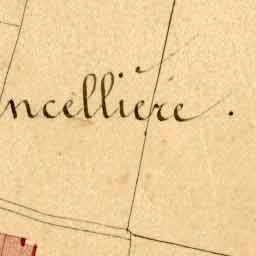 ncellière.